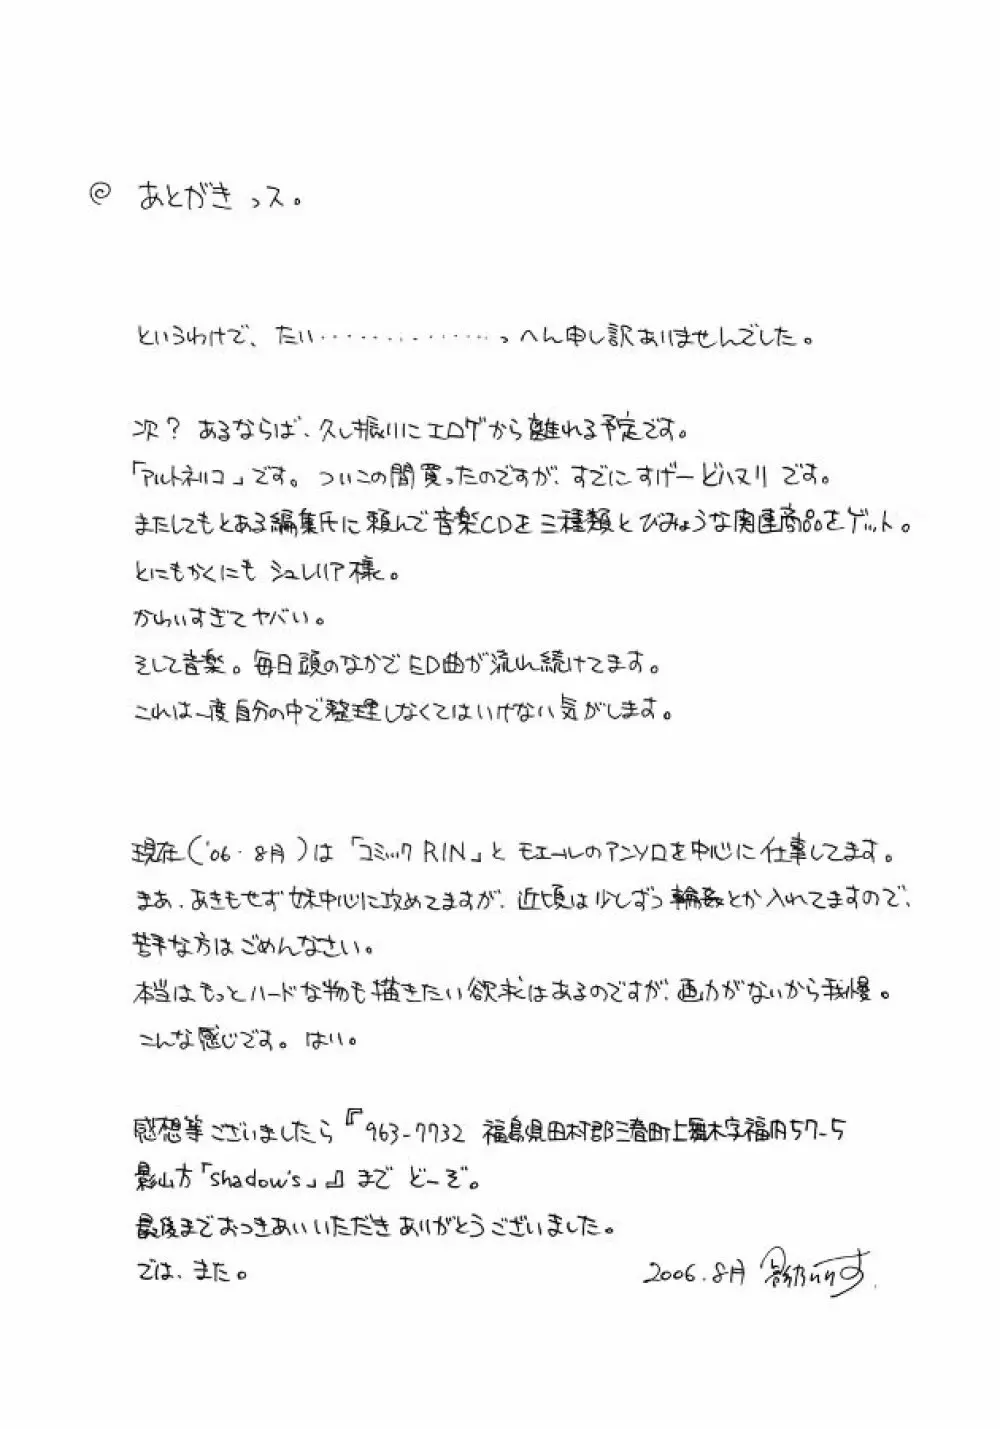 @ あとがきっス。
というわけで、たい・・・・・・・・・・・・・・・っへん申し訳ありませんでした。
次？ あるならば、久し振りにエロゲから離れる予定です。
「アルトネリコ」です。ついこの間買ったのですが、すでにすげーどハマリです。
またしてもとある編集氏に頼んで音楽CDを三種類とびみょうな関連商品をゲット。
とにもかくにもシュレリア様。
かわいすぎてヤバい。
そして音楽。毎日頭のなかでED曲が流れ続けてます。
これは一度自分の中で整理しなくてはいけない気がします。
現在('06.8月)は「コミックRIN」とモエールのアンソロを中心に仕事してます。
まあ、あきもせず妹中心に攻めてますが、近頃は少しずつ輪姦とか入れてますので、
苦手な方はごめんなさい。
本当はもっとハードな物も描きたい欲求はあるのですが、画力がないから我慢。
こんな感じです。はい。
感想等ございましたら『963-7732 福島県田村郡三春町上舞木字福内57-5
影山方「Shadow's」』までどーぞ。
最後までおつきあいいただきありがとうございました。
では、また。
2006.8月